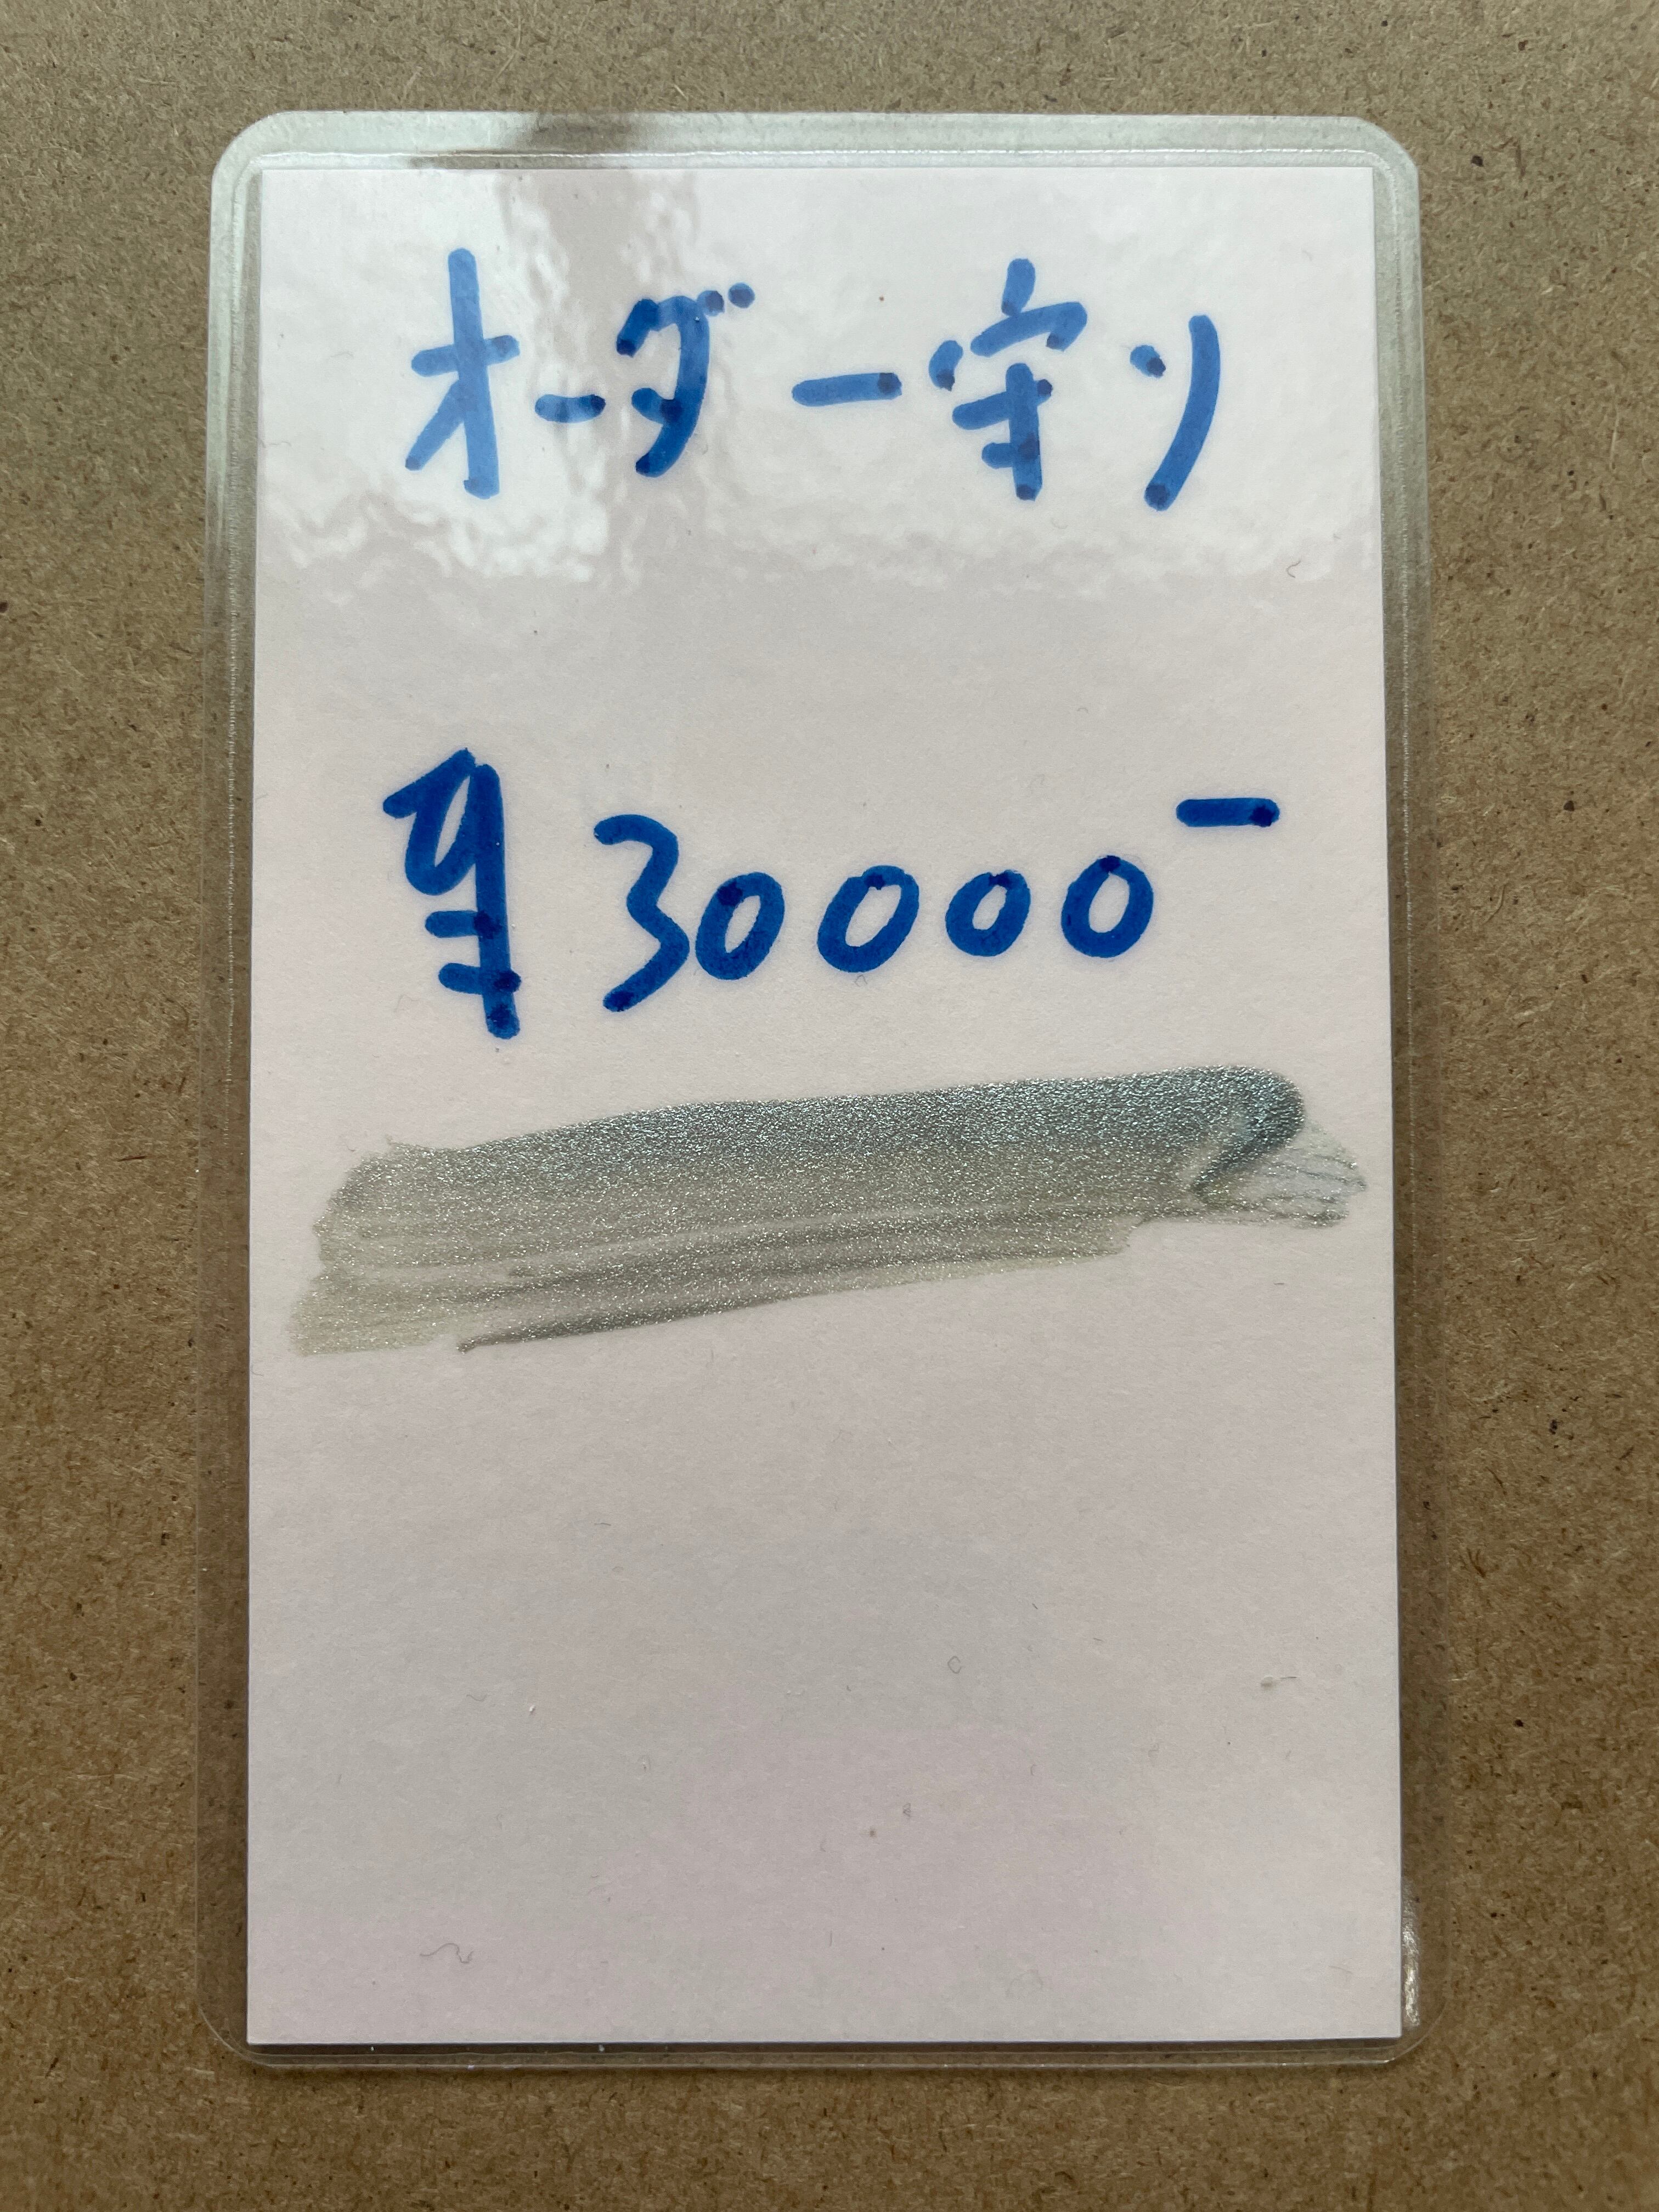 オーダー守り
¥30000-